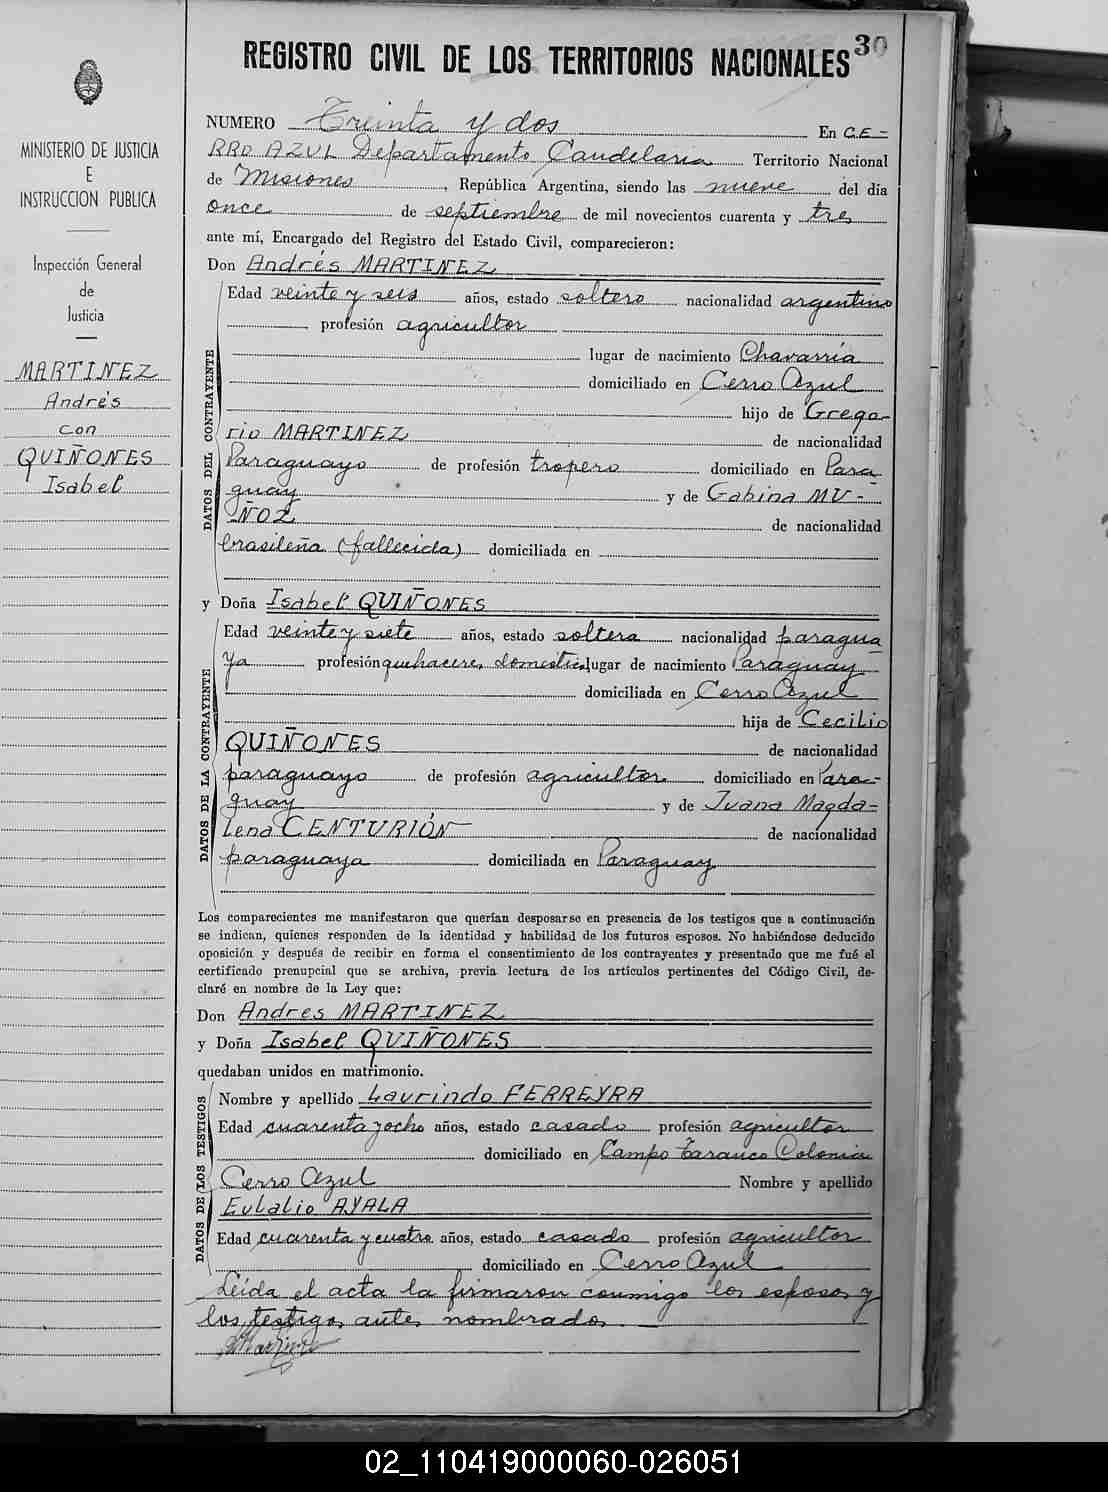 30
REGISTRO CIVIL DE LOS TERRITORIOS NACIONALES
MINISTERIO DE JUSTICIA
E
INSTRUCCION PUBLICA
Inspección General
de
Justicia
MARTINEZ
Andrés
con
QUIÑONES
Isabel
NUMERO Treinta y dos En CE-
RRO AZUL Departamento Candelaria Territorio Nacional
de Misiones, República Argentina, siendo las nueve del día
once de septiembre de mil novecientos cuarenta y tres
ante mí, Encargado del Registro del Estado Civil, comparecieron:
Don Andrés MARTINEZ
DATOS DEL CONTRAYENTE
Edad veinte y seis años, estado soltero nacionalidad argentino
profesión agricultor
lugar de nacimiento Chavarría
domiciliado en Cerro Azul
hijo de Grego-
rio MARTINEZ de nacionalidad
Paraguayo de profesión tropero domiciliado en Para-
guay y de Gabina MU-
ÑOZ de nacionalidad
brasileña (fallecida) domiciliada en
y Doña Isabel QUIÑONES
DATOS DE LA CONTRAYENTE
Edad veinte y siete años, estado soltera nacionalidad paragua-
ya profesión quehaceres domésticos lugar de nacimiento Paraguay
domiciliada en Cerro Azul
hija de Cecilio
QUIÑONES de nacionalidad
paraguayo de profesión agricultor domiciliado en Para-
guay y de Juana Magda-
lena CENTURIÓN de nacionalidad
paraguaya domiciliada en Paraguay
Los comparecientes me manifestaron que querían desposarse en presencia de los testigos que a continuación
se indican, quienes responden de la identidad y habilidad de los futuros esposos. No habiéndose deducido
oposición y después de recibir en forma el consentimiento de los contrayentes y presentado que me fué el
certificado prenupcial que se archiva, previa lectura de los artículos pertinentes del Código Civil, de-
claré en nombre de la Ley que:
Don Andres MARTINEZ
y Doña Isabel QUIÑONES
quedaban unidos en matrimonio.
DATOS DE LOS TESTIGOS
Nombre y apellido Laurindo FERREYRA
Edad cuarenta y ocho años, estado casado profesión agricultor
domiciliado en Campo Taranco Colonia
Cerro Azul Nombre y apellido
Eulalio AYALA
Edad cuarenta y cuatro años, estado casado profesión agricultor
domiciliado en Cerro Azul
Leída el acta la firmaron conmigo los esposos y
los testigos antes nombrados.
02_110419000060-026051